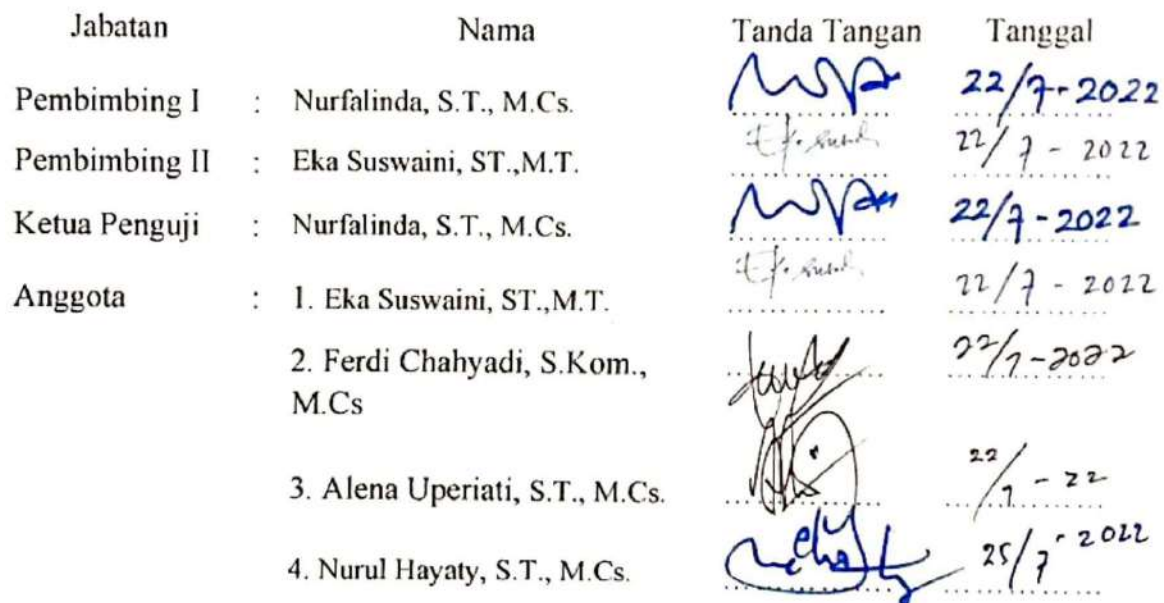 Jabatan Nama Tanda Tangan Tanggal
Pembimbing I : Nurfalinda, S.T., M.Cs. 22/7-2022
Pembimbing II : Eka Suswaini, ST.,M.T. 22/7 - 2022
Ketua Penguji : Nurfalinda, S.T., M.Cs. 22/7-2022
Anggota : 1. Eka Suswaini, ST.,M.T. 22/7 - 2022
2. Ferdi Chahyadi, S.Kom., 22/7-2022
M.Cs
3. Alena Uperiati, S.T., M.Cs. 22/7 - 22
4. Nurul Hayaty, S.T., M.Cs. 25/7-2022